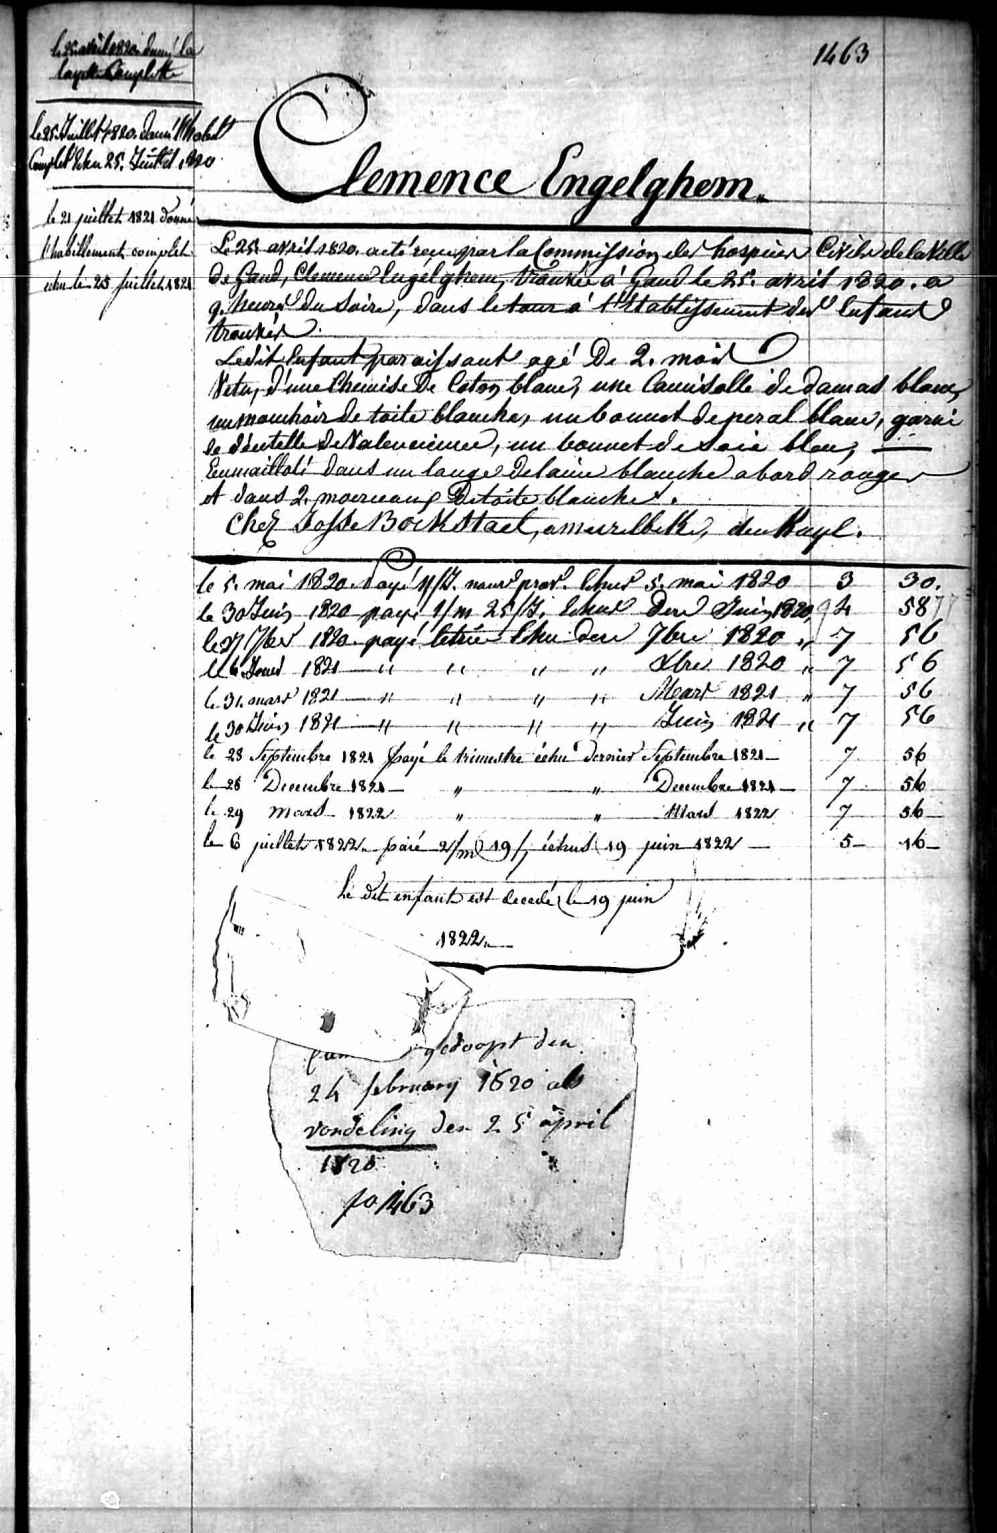 1463
le 25 avril 1820 donné la
layette Complette
le 25. Juillet 1820. donné
Complet Echu 25. Juillet 1820
le 21 juillet 1821 donné
l'habillement complet
echu le 25 juillet 1821
Clemence Engelghem.
Le 25 avril 1820. a été reçu par la Commission des hospices Civils de la Ville
de Gand, Clemence Engelghem, trouvée à Gand le 25. avril 1820. a
9. heures du Soire, dans le tour à l'Etablissement des Enfans
trouvés.
Ledit Enfant paraissant agé De 2. mois
Vetu, d'une Chemise De Coton blanc, une Camisolle de damas blanc,
un mouchoir de toile blanche, un bonnet de peral blanc, garni
de dentelle de Valencienne, un bonnet de Soie bleu,
Enmailloté dans un lange De laine blanche a bord rouge
et dans 2. morceaux De toile blanche.
Chez Josse Bockstael, a meirelbeke,
le 5. mai 1820. payé 11/J. nour prov. Echus 5. mai 1820 3 30.
le 30 Juin 1820 payé 1/m 25/J. Echus Der Juin 1820, 4 58
le 27 7bre 1820 payé letrie Echu der 7bre 1820 " 7 56
le 6 Janv 1821 " " " " Xbre 1820 " 7 56
le 31. mars 1821 " " " " Mars 1821 " 7 56
le 30 Juin 1821 " " " " Juin 1821 " 7 56
le 28 Septembre 1821 payé le trimestre échu dernier Septembre 1821 7 56
le 28 Decembre 1821 " " Decembre 1821 7 56
le 29 mars 1822 " " Mars 1822 7 56
le 6 juillet 1822. paié 2/m 19/j échus 19 juin 1822 5 16
Le dit enfant est decedé le 19 juin
1822.
gedoopt den
24 february 1820 als
vondeling den 25 april
1820
fo 1463